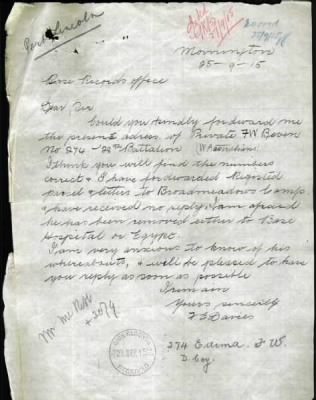 Port Lincoln
Mornington
25-9-15
Base Records Office
Dear Sir
Could you kindly forward me
the present adress of Private F W Beven
No 274 - 22nd Battalion
I think you will find the numbers
correct & I have forwarded Registed
parcel & letter to Broadmeadows Camp
& have received no reply I am afraid
he has been removed either to Base
Hospital or Egypt.
I am very anxious to know of his
whereabouts, & will be pleased to have
you reply as soon as possible
I remain
Yours sincerely
F E Davies
274
D. Coy.